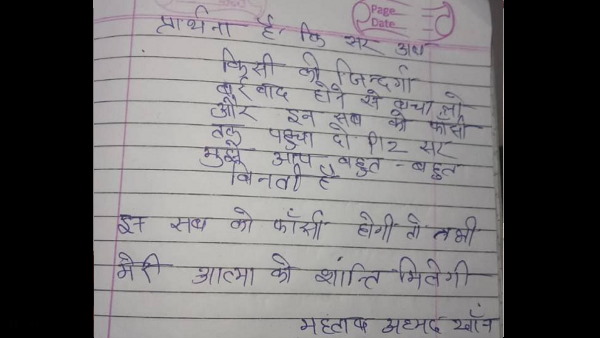 Page
Date
प्रार्थना है. कि सर अब
किसी की जिन्दगी
बर्रबाद होने से बचा लो
और इन सब को फांसी
तक पहुचा दो PIZ सर
मुझे आप बहुत - बहुत
विनती है
इन सब को फाँसी होगी तो तभी
मेरी आत्मा को शांन्ति मिलेगी
महताब अहमद खाँन